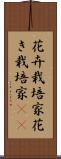 花卉栽培家花
き栽培家